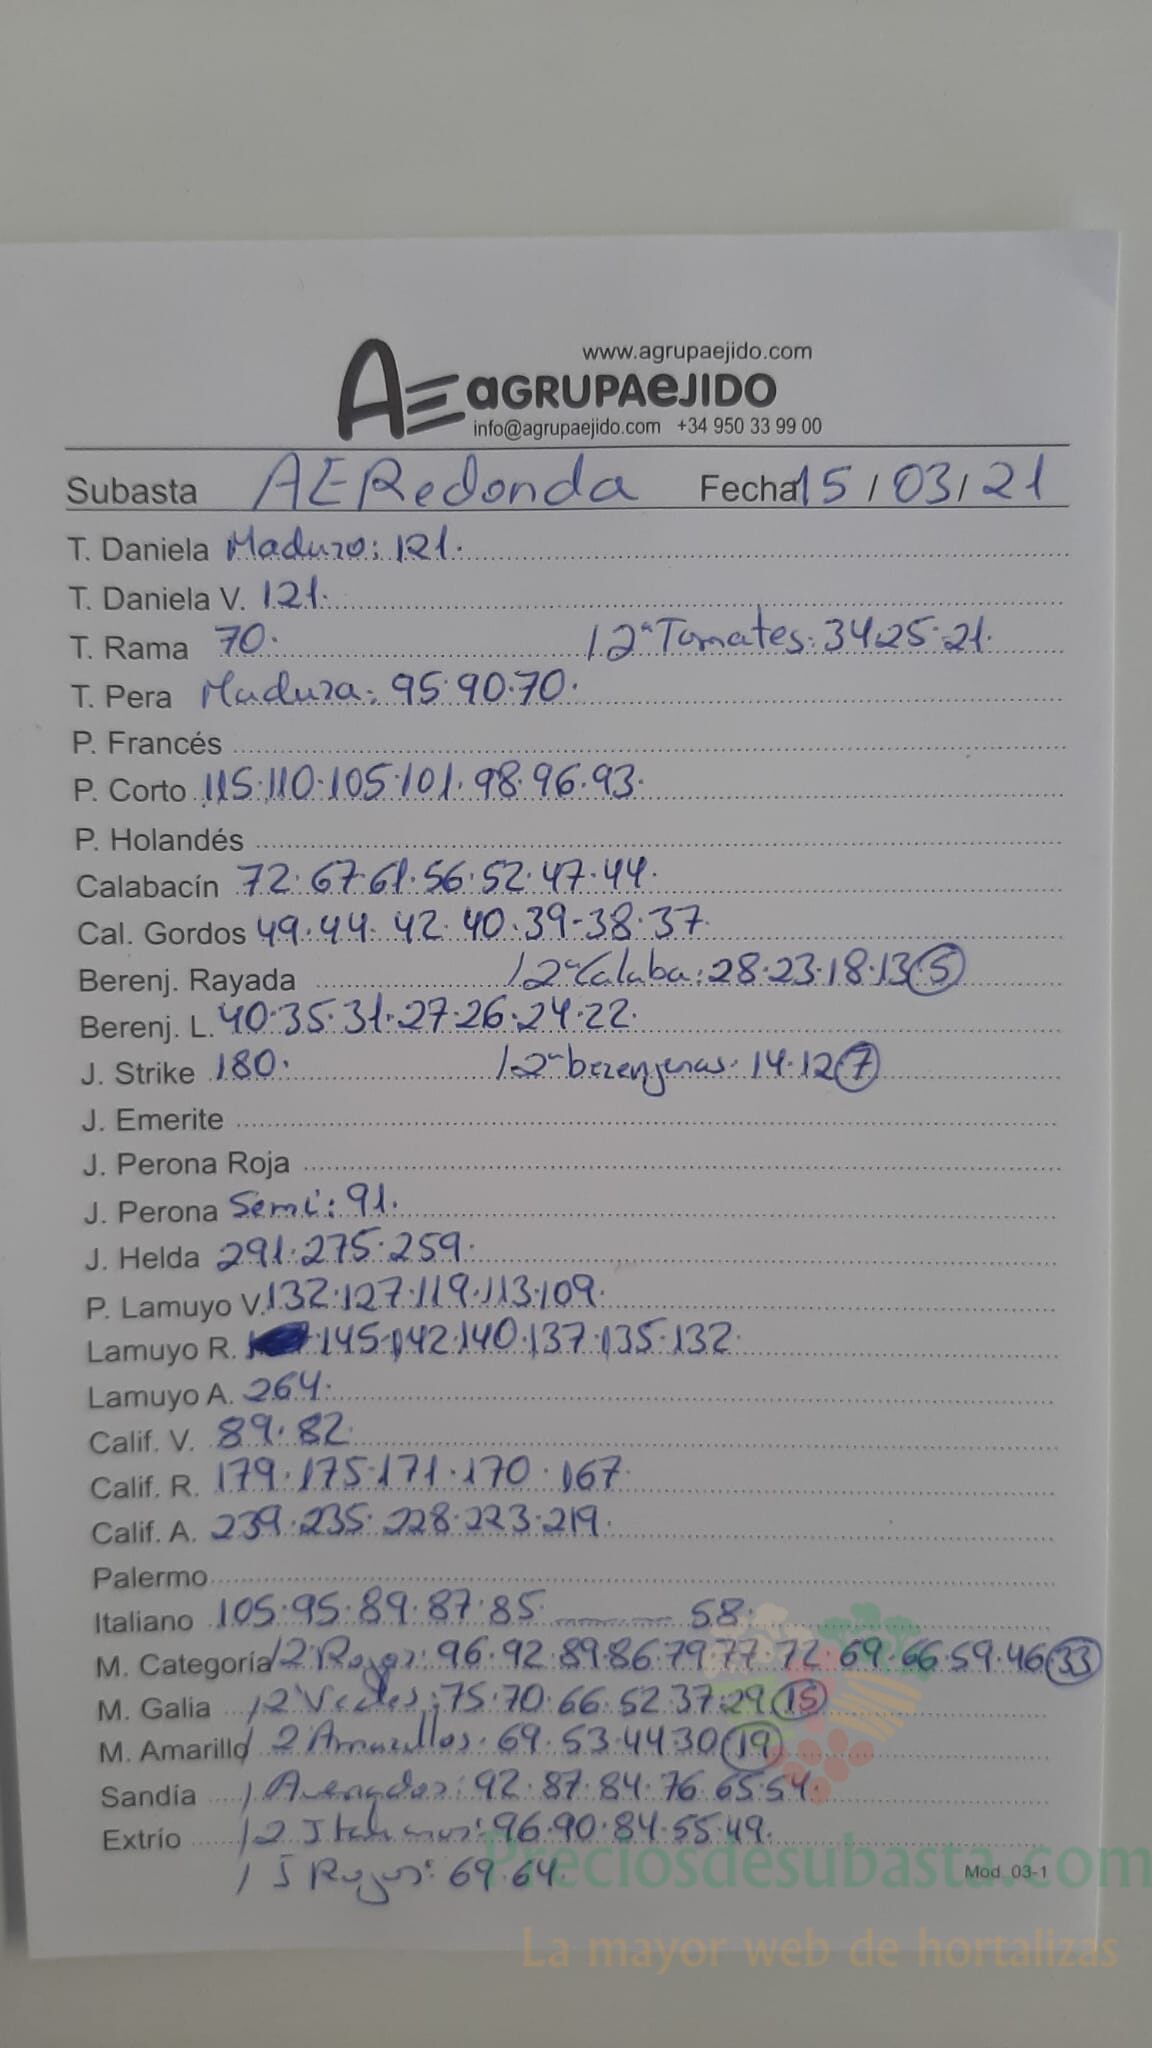 www.agrupaejido.com
AE aGRUPAeJIDO
info@agrupaejido.com +34 950 33 99 00
Subasta AE Redonda Fecha 15/03/21
T. Daniela Maduro: 121.
T. Daniela V. 121.
T. Rama 70. / 2ª Tomates: 34.25.21.
T. Pera Madura: 95.90.70.
P. Francés
P. Corto 115.110.105.101.98.96.93.
P. Holandés
Calabacín 72.67.61.56.52.47.44.
Cal. Gordos 49.44.42.40.39-38.37.
Berenj. Rayada / 2ª Calaba: 28.23.18.13 (5)
Berenj. L. 40.35.31.27.26.24.22.
J. Strike 180. / 2ª berenjenas: 14.12 (7)
J. Emerite
J. Perona Roja
J. Perona Semi: 91.
J. Helda 291.275.259.
P. Lamuyo V. 132.127.119.113.109.
Lamuyo R. 145.142.140.137.135.132.
Lamuyo A. 264.
Calif. V. 89.82.
Calif. R. 179.175.171.170.167.
Calif. A. 239.235.228.223.219.
Palermo
Italiano 105.95.89.87.85. 58.
M. Categoría / 2 Rojos: 96.92.89.86.79.77.72.69.66.59.46 (33)
M. Galia / 2 Verdes: 75.70.66.52.37.29 (15)
M. Amarillo / 2 Amarillos: 69.53.44.30 (19)
Sandía / Asurcados: 92.87.84.76.65.54.
Extrío / 2 Italianos: 96.90.84.55.49.
/ I Rojos: 69.64.
Mod. 03-1
Preciosdesubasta.com
La mayor web de hortalizas